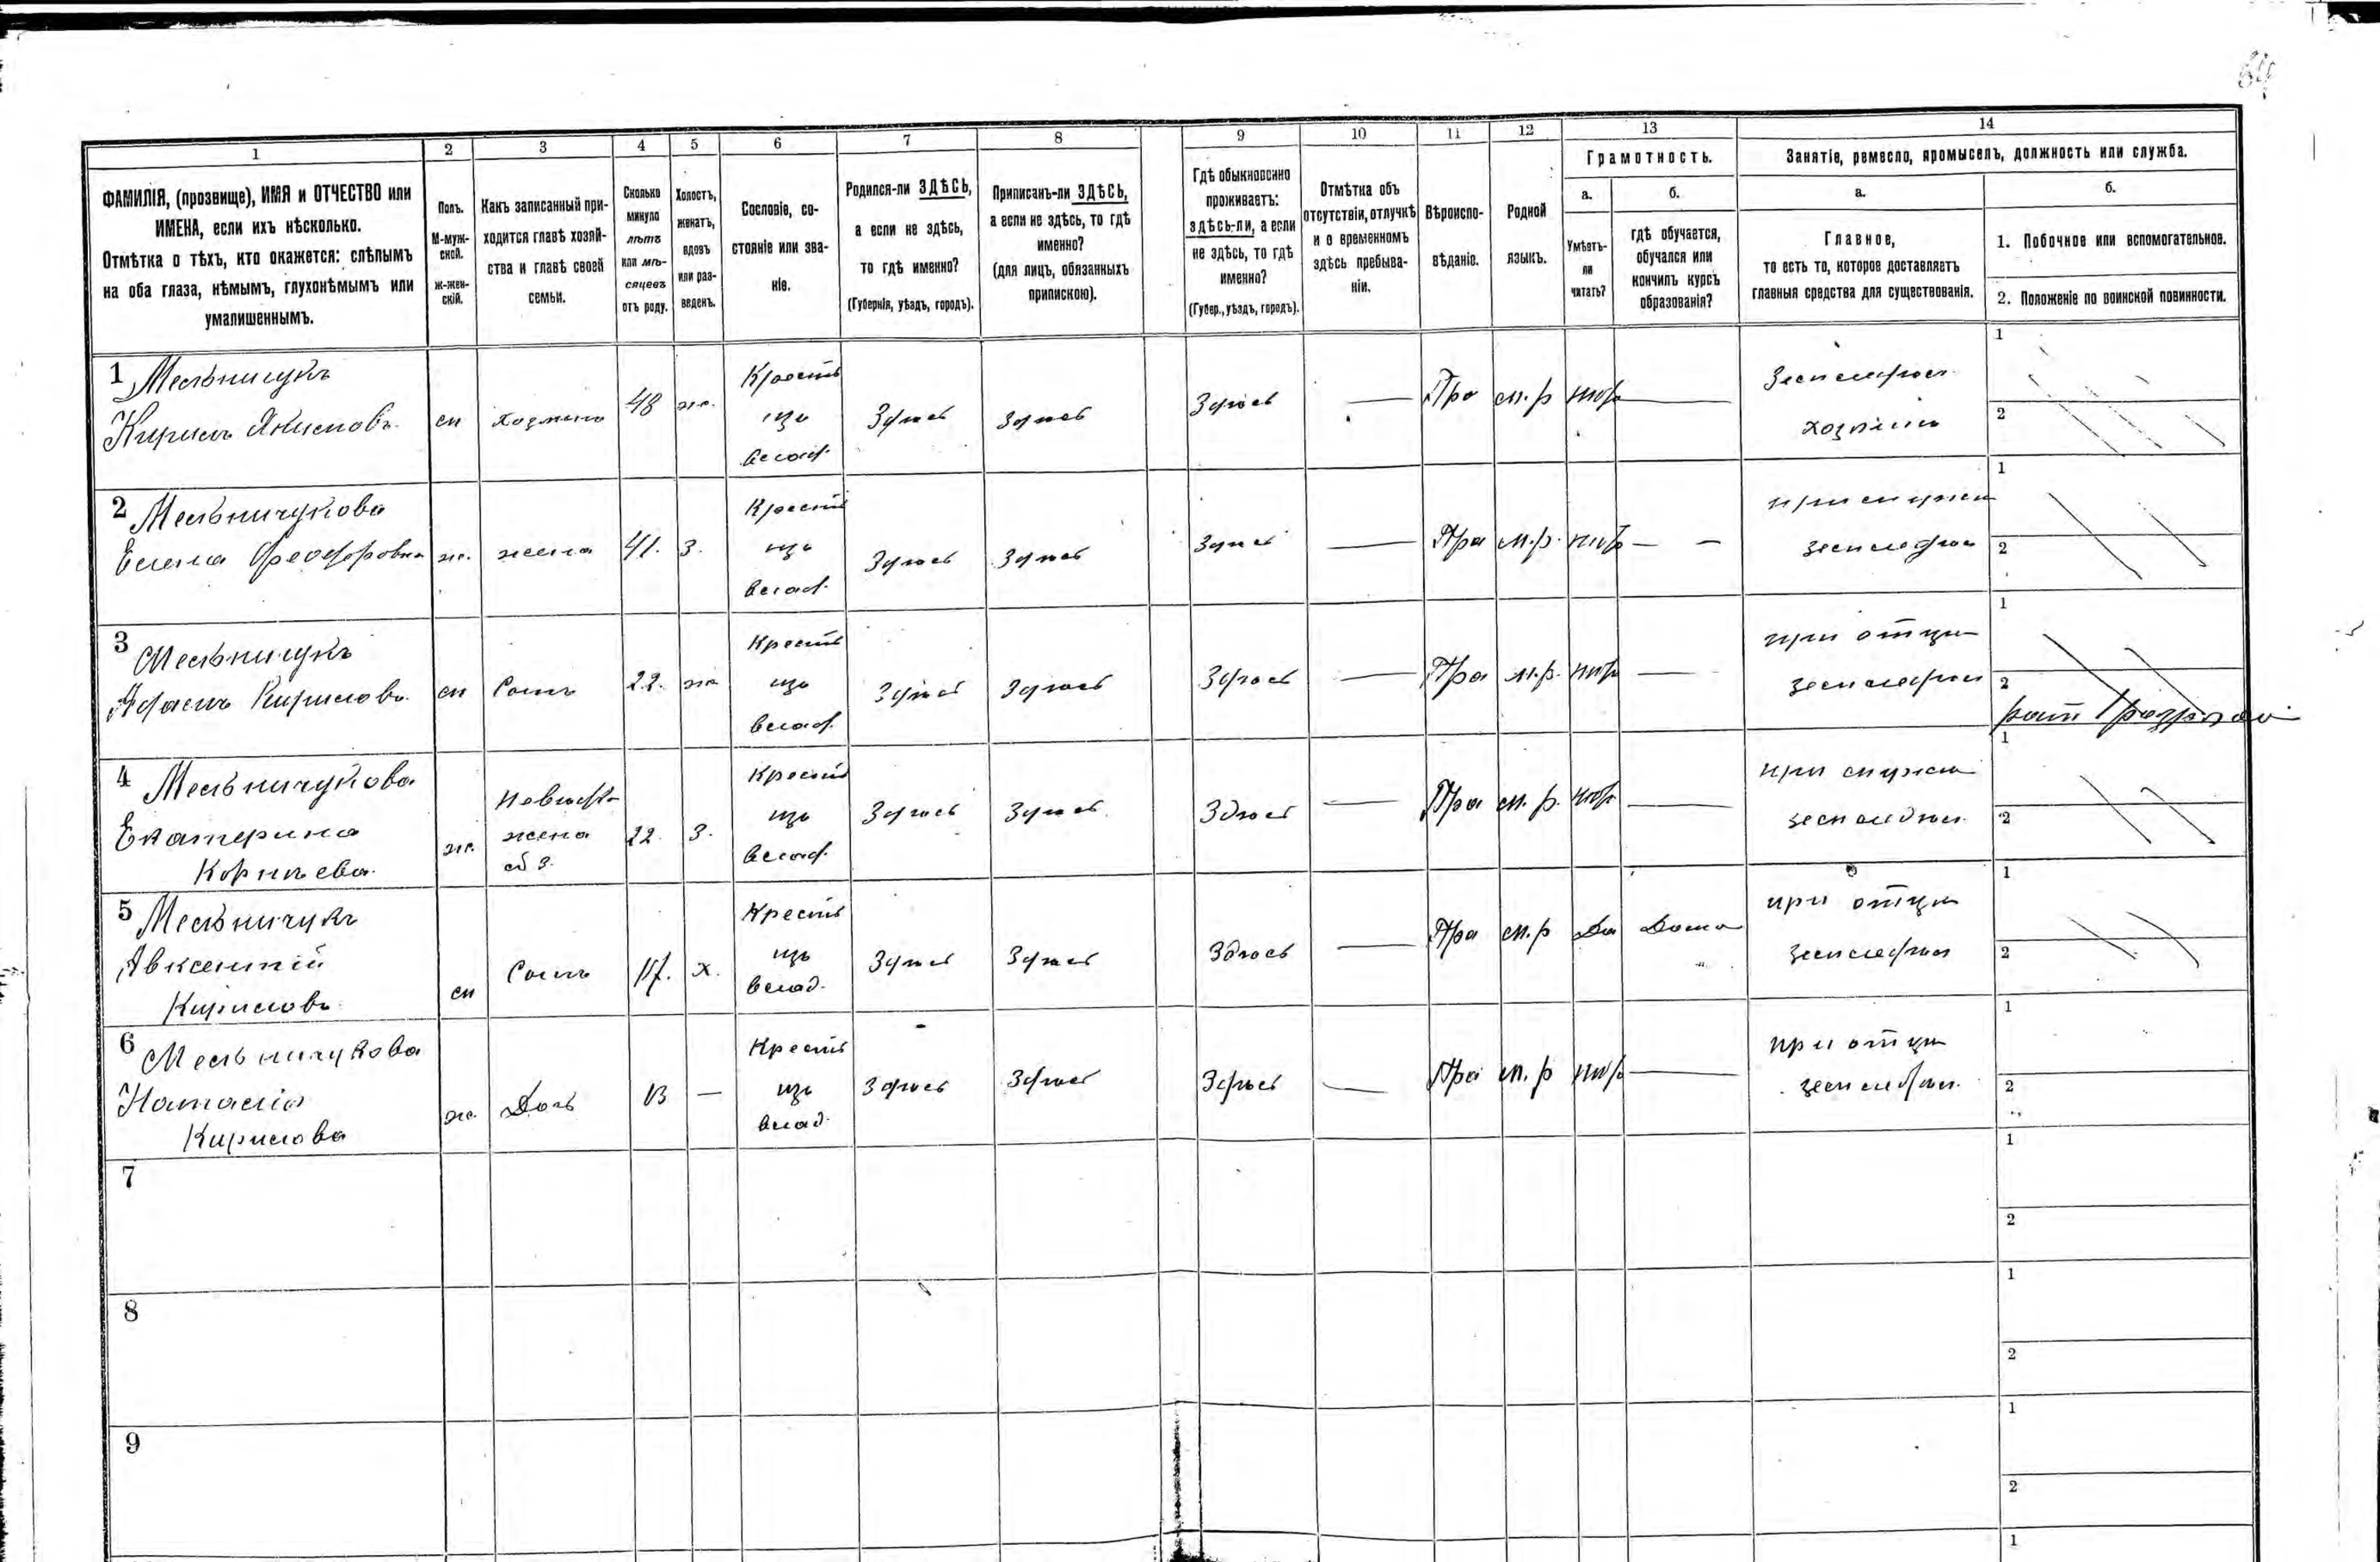 64
1 2 3 4 5 6 7 8 9 10 11 12 13 14
ФАМИЛІЯ, (прозвище), ИМЯ и ОТЧЕСТВО или
ИМЕНА, если ихъ нѣсколько.
Отмѣтка о тѣхъ, кто окажется: слѣпымъ
на оба глаза, нѣмымъ, глухонѣмымъ или
умалишеннымъ.
Полъ.
М-муж-
ской.
ж-жен-
скій.
Какъ записанный при-
ходится главѣ хозяй-
ства и главѣ своей
семьи.
Сколько
минуло
лѣтъ
или мѣ-
сяцевъ
отъ роду.
Холостъ,
женатъ,
вдовъ
или раз-
веденъ.
Сословіе, со-
стояніе или зва-
ніе.
Родился-ли ЗДѢСЬ,
а если не здѣсь,
то гдѣ именно?
(Губернія, уѣздъ, городъ).
Приписанъ-ли ЗДѢСЬ,
а если не здѣсь, то гдѣ
именно?
(для лицъ, обязанныхъ
припискою).
Гдѣ обыкновенно
проживаетъ:
здѣсь-ли, а если
не здѣсь, то гдѣ
именно?
(Губер., уѣздъ, городъ).
Отмѣтка объ
отсутствіи, отлучкѣ
и о временномъ
здѣсь пребыва-
ніи.
Вѣроиспо-
вѣданіе.
Родной
языкъ.
Грамотность.
а.
Умѣетъ-
ли
читать?
б.
гдѣ обучается,
обучался или
кончилъ курсъ
образованія?
Занятіе, ремесло, промыселъ, должность или служба.
а.
Главное,
то есть то, которое доставляетъ
главныя средства для существованія.
б.
1. Побочное или вспомогательное.
2. Положеніе по воинской повинности.
1 Мельничукъ
Кирилъ Якимовъ
м хозяинъ 48 ж.
Крестъ
изъ
влад.
Здѣсь Здѣсь Здѣсь — Пра м.р нѣтъ —
Земледѣл.
хозяинъ
1
2
2 Мельничукова
Елена Феодоровна
ж. жена 41. З.
Крестъ
изъ
влад.
Здѣсь Здѣсь Здѣсь — Пра м.р. нѣтъ — —
при мужѣ
земледѣл
1
2
3 Мельничукъ
Адамъ Кириловъ
м Сынъ 22. ж
Крестъ
изъ
влад.
Здѣсь Здѣсь Здѣсь — Пра м.р. нѣтъ —
при отцѣ
земледѣл
1
2
рат 1 разряда
4 Мельничукова
Екатерина
Корнѣева
ж.
Невѣстк
жена
№ 3.
22. З.
Крестъ
изъ
влад.
Здѣсь Здѣсь Здѣсь — Пра м.р. нѣтъ —
при мужѣ
земледѣл.
1
2
5 Мельничукъ
Авксентій
Кириловъ
м Сынъ 17. х.
Крестъ
изъ
влад.
Здѣсь Здѣсь Здѣсь — Пра м.р Да Дома
при отцѣ
земледѣл
1
2
6 Мельничукова
Наталія
Кирилова
ж. Дочь 13 —
Крестъ
изъ
влад.
Здѣсь Здѣсь Здѣсь — Пра м.р нѣтъ —
при отцѣ
земледѣл.
1
2
7
1
2
8
1
2
9
1
2
1